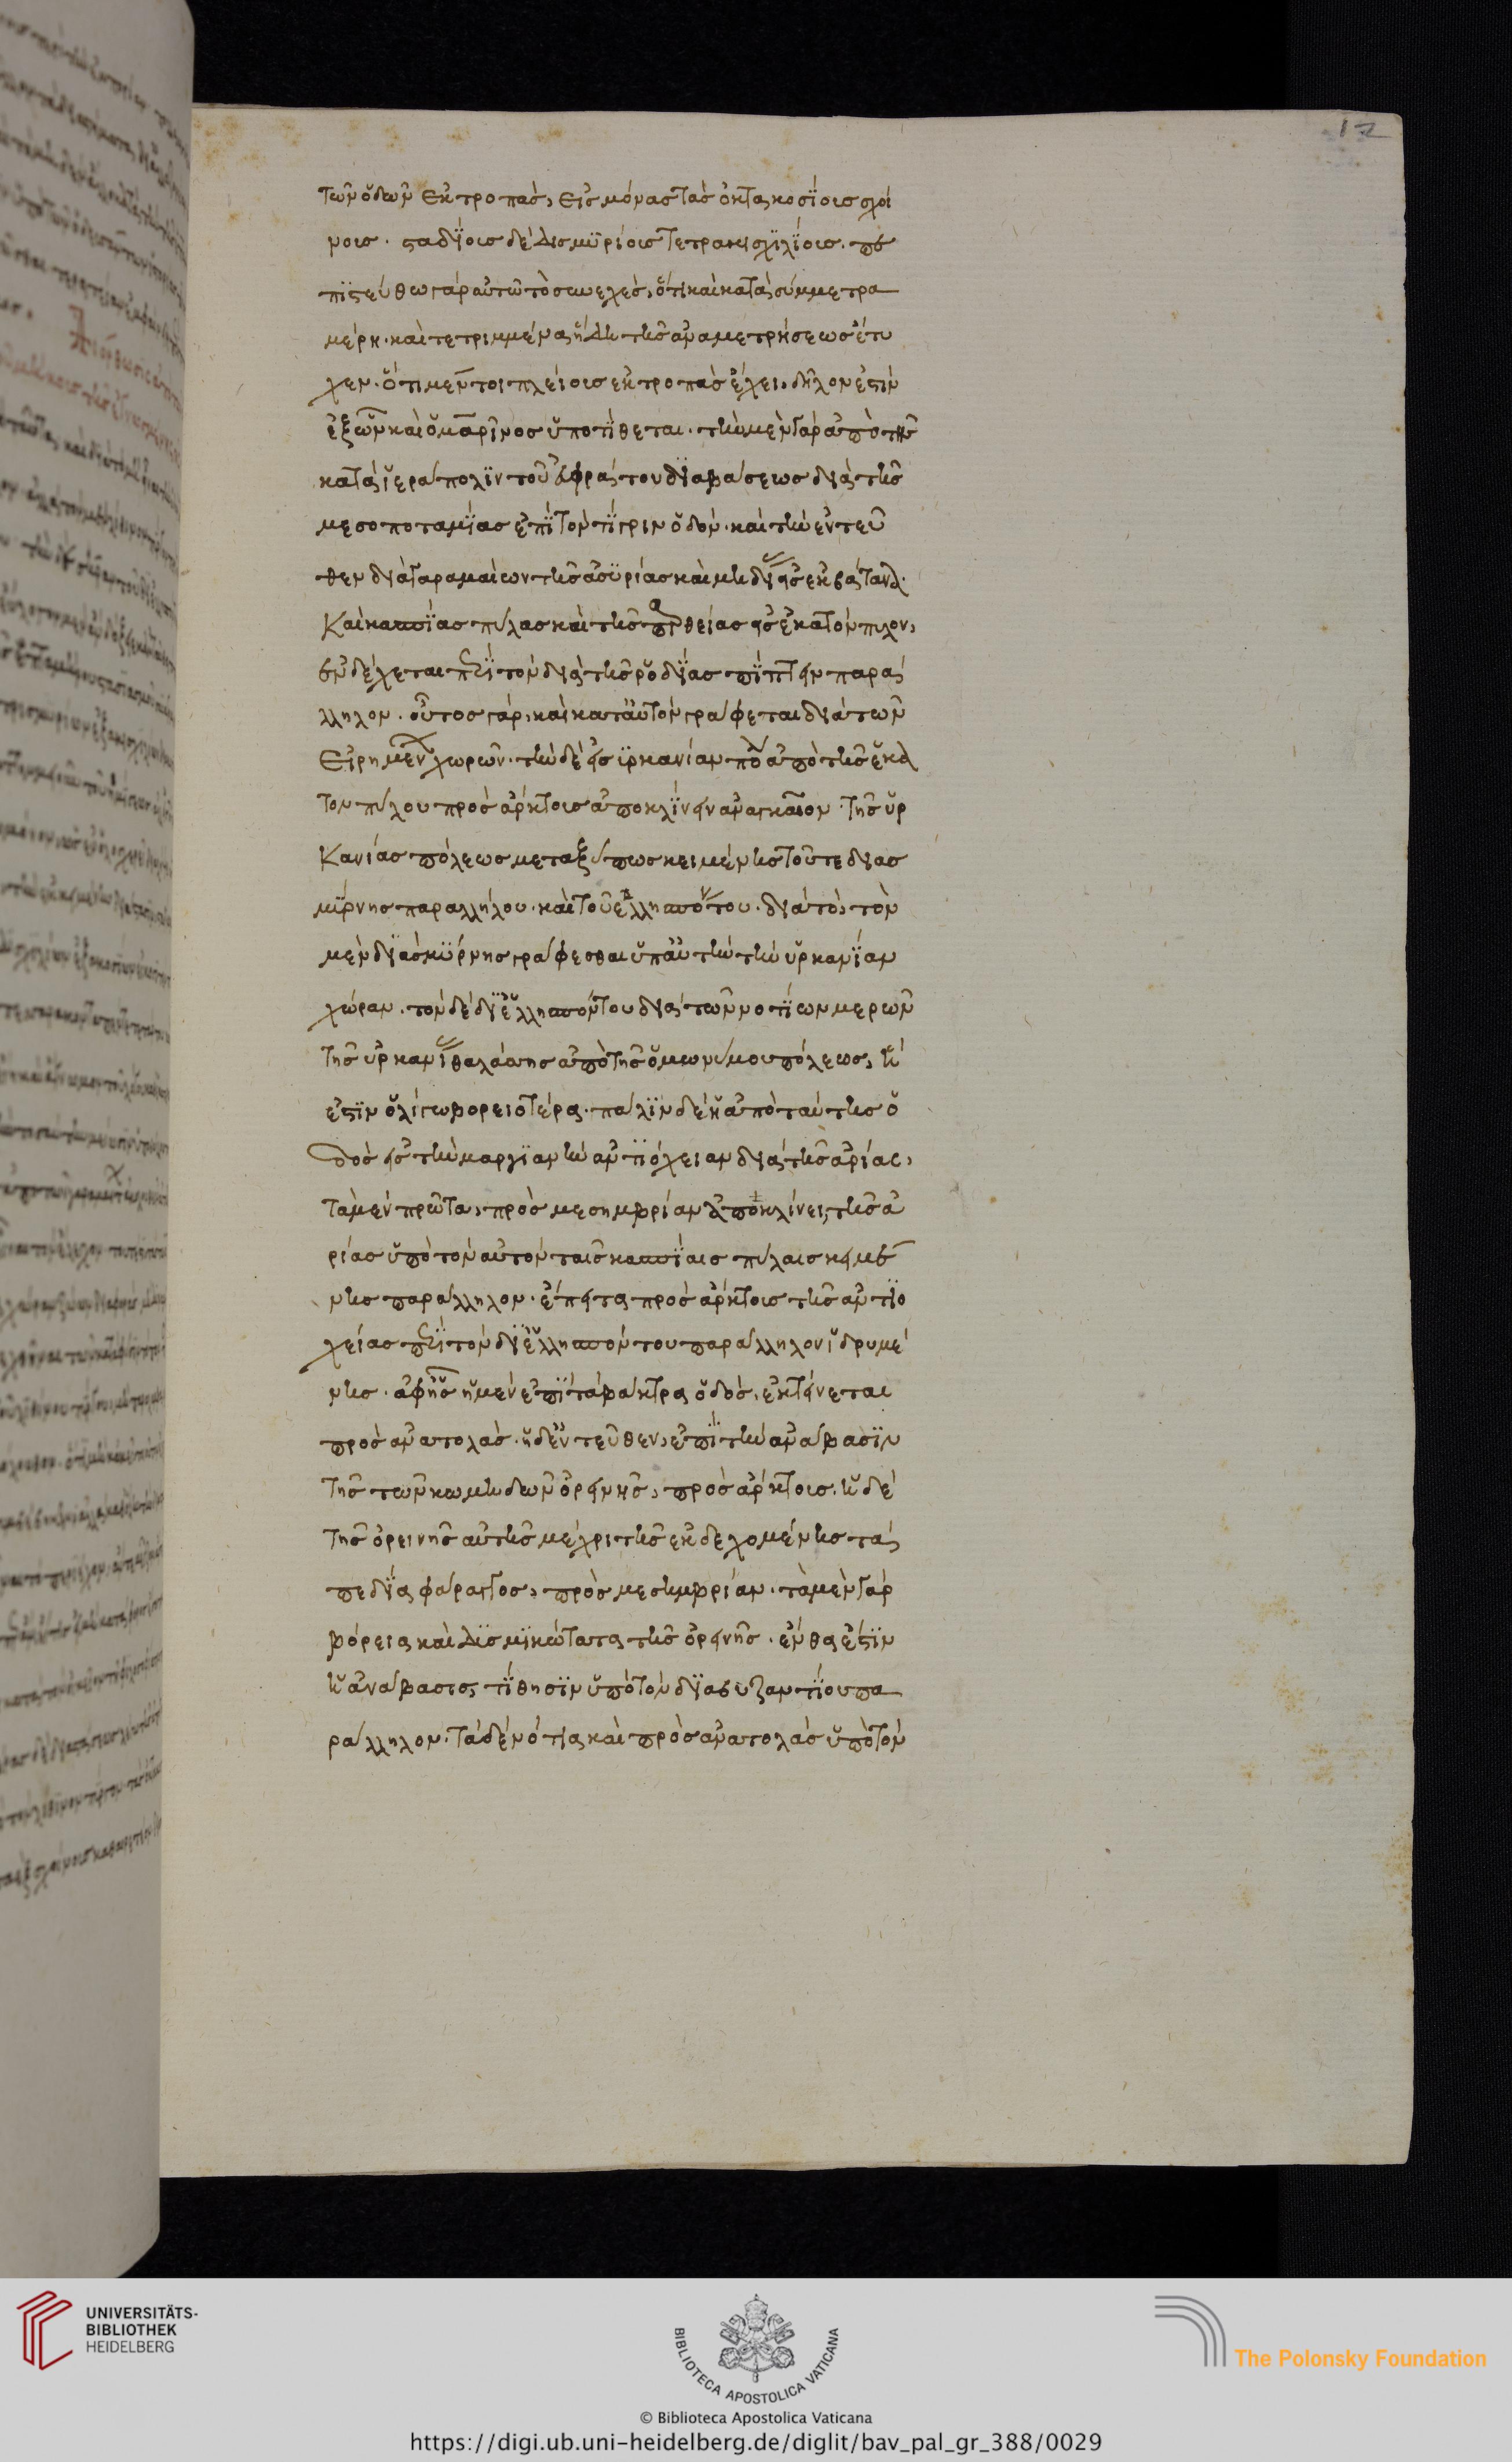 17
τῶν ὁδῶν ἐκτροπὰς, εἰς μόνας τὰς ὀκτακοσίοις σχοί
νοις. σταδίοις δὲ δισμυρίοις τετρακισχιλίοις. πε
πιστεύσθω γὰρ αὐτῶ τὸ συνεχὲς, ὅτι καὶ κατὰ σύμμετρα
μέρη. καὶ τετριμμένας ἤδη τῆς ἀναμετρήσεως ἔτυ
χεν. ὅτι μέντοι πλείοις ἐκτροπὰς ἔχει, δῆλόν ἐστιν
ἐξ ὧν καὶ ὁ μαρῖνος ὑποτίθεται. τὴν μὲν γὰρ ἀπὸ τῆς
κατὰ ἱεράπολιν τοῦ εὐφράτου διαβάσεως διὰ τῆς
μεσοποταμίας ἐπὶ τὸν τίγριν ὁδόν. καὶ τὴν ἐντεῦ
θεν διὰ γαραμαίων τῆς ἀσυρίας καὶ μηδίας εἰς ἐκβάτανα.
Καὶ κασπίας πύλας καὶ τῆς παρθείας εἰς ἑκατόνπυλον,
ἐνδέχεται περὶ τὸν διὰ τῆς ῥοδίας πίπτειν παρά
λληλον. οὗτος γὰρ, καὶ κατ' αὐτὸν γράφεται διὰ τῶν
Εἰρημένων χωρῶν. τὴν δὲ εἰς ὑρκανίαν πόλιν ἀπὸ τῆς ἑκα
τονπύλου πρὸς ἄρκτοις ἀποκλίνειν ἀναγκαῖον. τῆς ὑρ
Κανίας πόλεως μεταξύ πως κειμένης τοῦ τε διὰ σ
μύρνης παραλλήλου. καὶ τοῦ ἑλλησπόντου. διὰ τὸ, τὸν
μὲν διὰ σμύρνης γράφεσθαι ὑπ' αὐτὴν τὴν ὑρκανίαν
χώραν. τὸν δὲ δι' ἑλλησπόντου διὰ τῶν νοτίων μερῶν
τῆς ὑρκανίας θαλάσσης ἀπὸ τῆς ὁμωνύμου πόλεως, ἥ
ἐστιν ὀλίγω βορειοτέρα. πάλιν δὲ ἡ ἀπὸ ταύτης ὁ
δὸς εἰς τὴν μαργιανὴν ἀντιόχειαν διὰ τῆς ἀρίας,
τὰ μὲν πρῶτα, πρὸς μεσημβρίαν ἀποκλίνει, τῆς ἀ
ρίας ὑπὸ τὸν αὐτὸν ταῖς κασπίαις πύλαις κειμέ
νης παράλληλον. ἔπειτα πρὸς ἄρκτοις τῆς ἀντιο
χείας περὶ τὸν δι' ἑλλησπόντου παράλληλον ἱδρυμέ
νης. ἀφ' ἧς ἡ μὲν ἐπὶ τὰ βάκτρα ὁδὸς, ἐκτείνεται
πρὸς ἀνατολὰς. ἡ δ' ἐντεῦθεν, ἐπὶ τὴν ἀνάβασιν
τῆς τῶν κωμηδῶν ὀρεινῆς, πρὸς ἄρκτοις. ἡ δὲ
τῆς ὀρεινῆς αὐτῆς μέχρι τῆς ἐκδεχομένης τὰ
πεδία φάραγγος, πρὸς μεσημβρίαν. τὰ μὲν γὰρ
βόρεια καὶ δυσμικώτατα τῆς ὀρεινῆς. ἔνθα ἐστὶν
ἡ ἀνάβασις τίθησιν ὑπὸ τὸν διὰ βυζαντίου πα
ράλληλον. τὰ δὲ νότια καὶ πρὸς ἀνατολὰς ὑπὸ τὸν
UNIVERSITÄTS-
BIBLIOTHEK
HEIDELBERG
BIBLIOTECA APOSTOLICA VATICANA
The Polonsky Foundation
© Biblioteca Apostolica Vaticana
https://digi.ub.uni-heidelberg.de/diglit/bav_pal_gr_388/0029